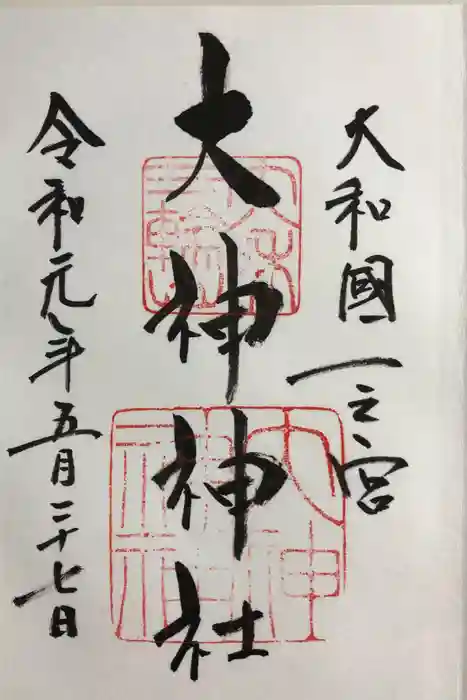 大和國一之宮
大神神社
令和元年五月二十七日